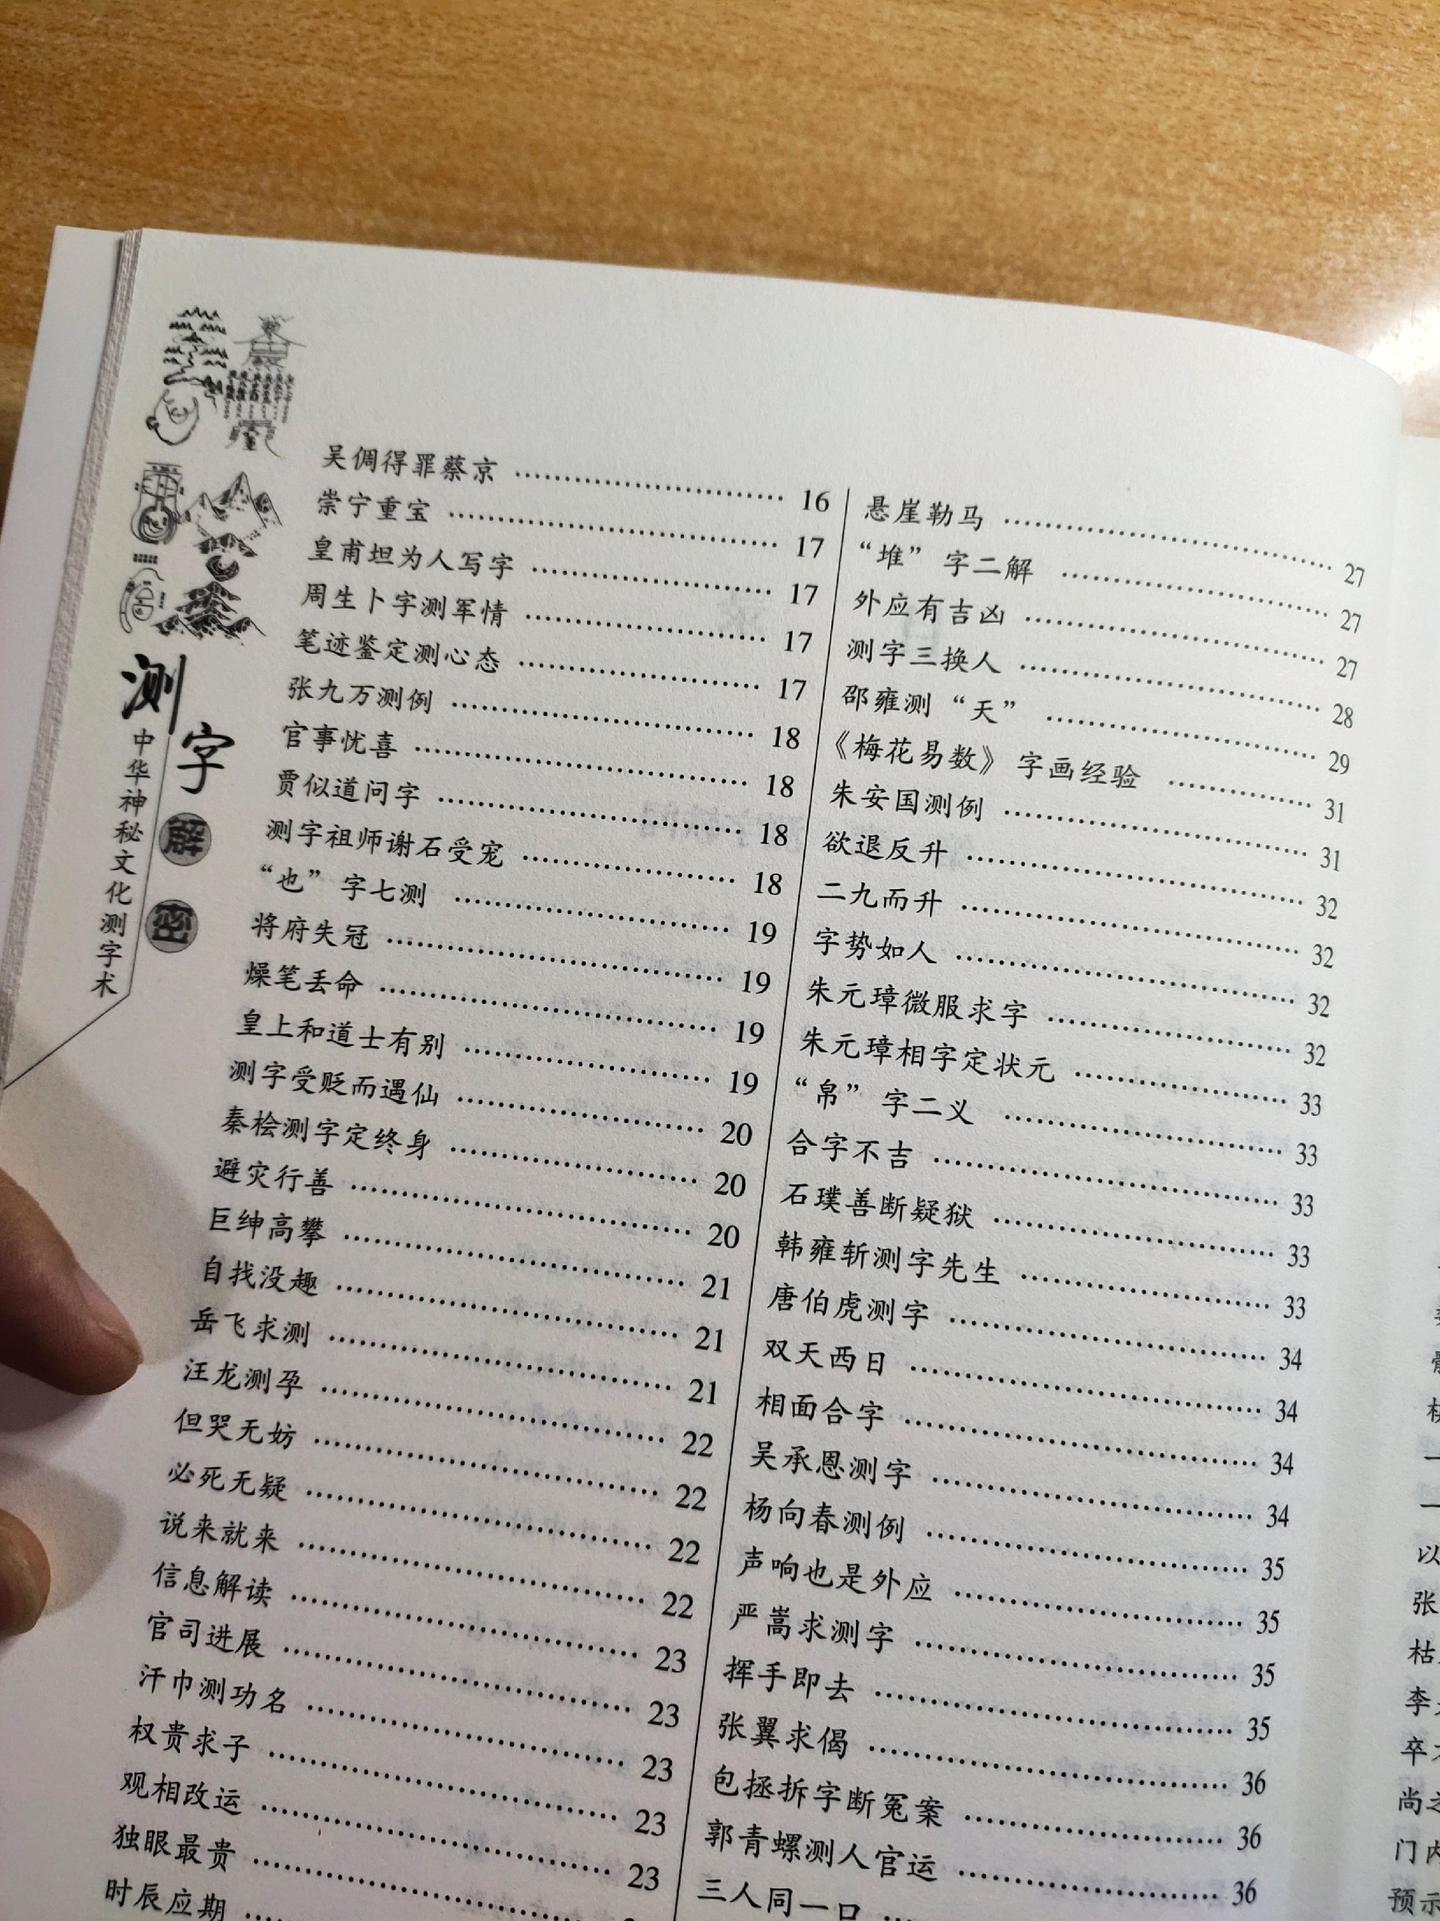 测字解密
中华神秘文化测字术
吴倜得罪蔡京 16
崇宁重宝 17
皇甫坦为人写字 17
周生卜字测军情 17
笔迹鉴定测心态 17
张九万测例 18
官事忧喜 18
贾似道问字 18
测字祖师谢石受宠 18
“也”字七测 19
将府失冠 19
燥笔丢命 19
皇上和道士有别 19
测字受贬而遇仙 20
秦桧测字定终身 20
避灾行善 20
巨绅高攀 21
自找没趣 21
岳飞求测 21
汪龙测孕 22
但哭无妨 22
必死无疑 22
说来就来 22
信息解读 23
官司进展 23
汗巾测功名 23
权贵求子 23
观相改运 23
独眼最贵
时辰应期
悬崖勒马 27
“堆”字二解 27
外应有吉凶 27
测字三换人 28
邵雍测“天” 29
《梅花易数》字画经验 31
朱安国测例 31
欲退反升 32
二九而升 32
字势如人 32
朱元璋微服求字 32
朱元璋相字定状元 33
“帛”字二义 33
合字不吉 33
石璞善断疑狱 33
韩雍斩测字先生 33
唐伯虎测字 34
双天西日 34
相面合字 34
吴承恩测字 34
杨向春测例 35
声响也是外应 35
严嵩求测字 35
挥手即去 35
张翼求偈 36
包拯拆字断冤案 36
郭青螺测人官运 36
三人同一口
以
张
枯
李
卒
尚
门内
预示